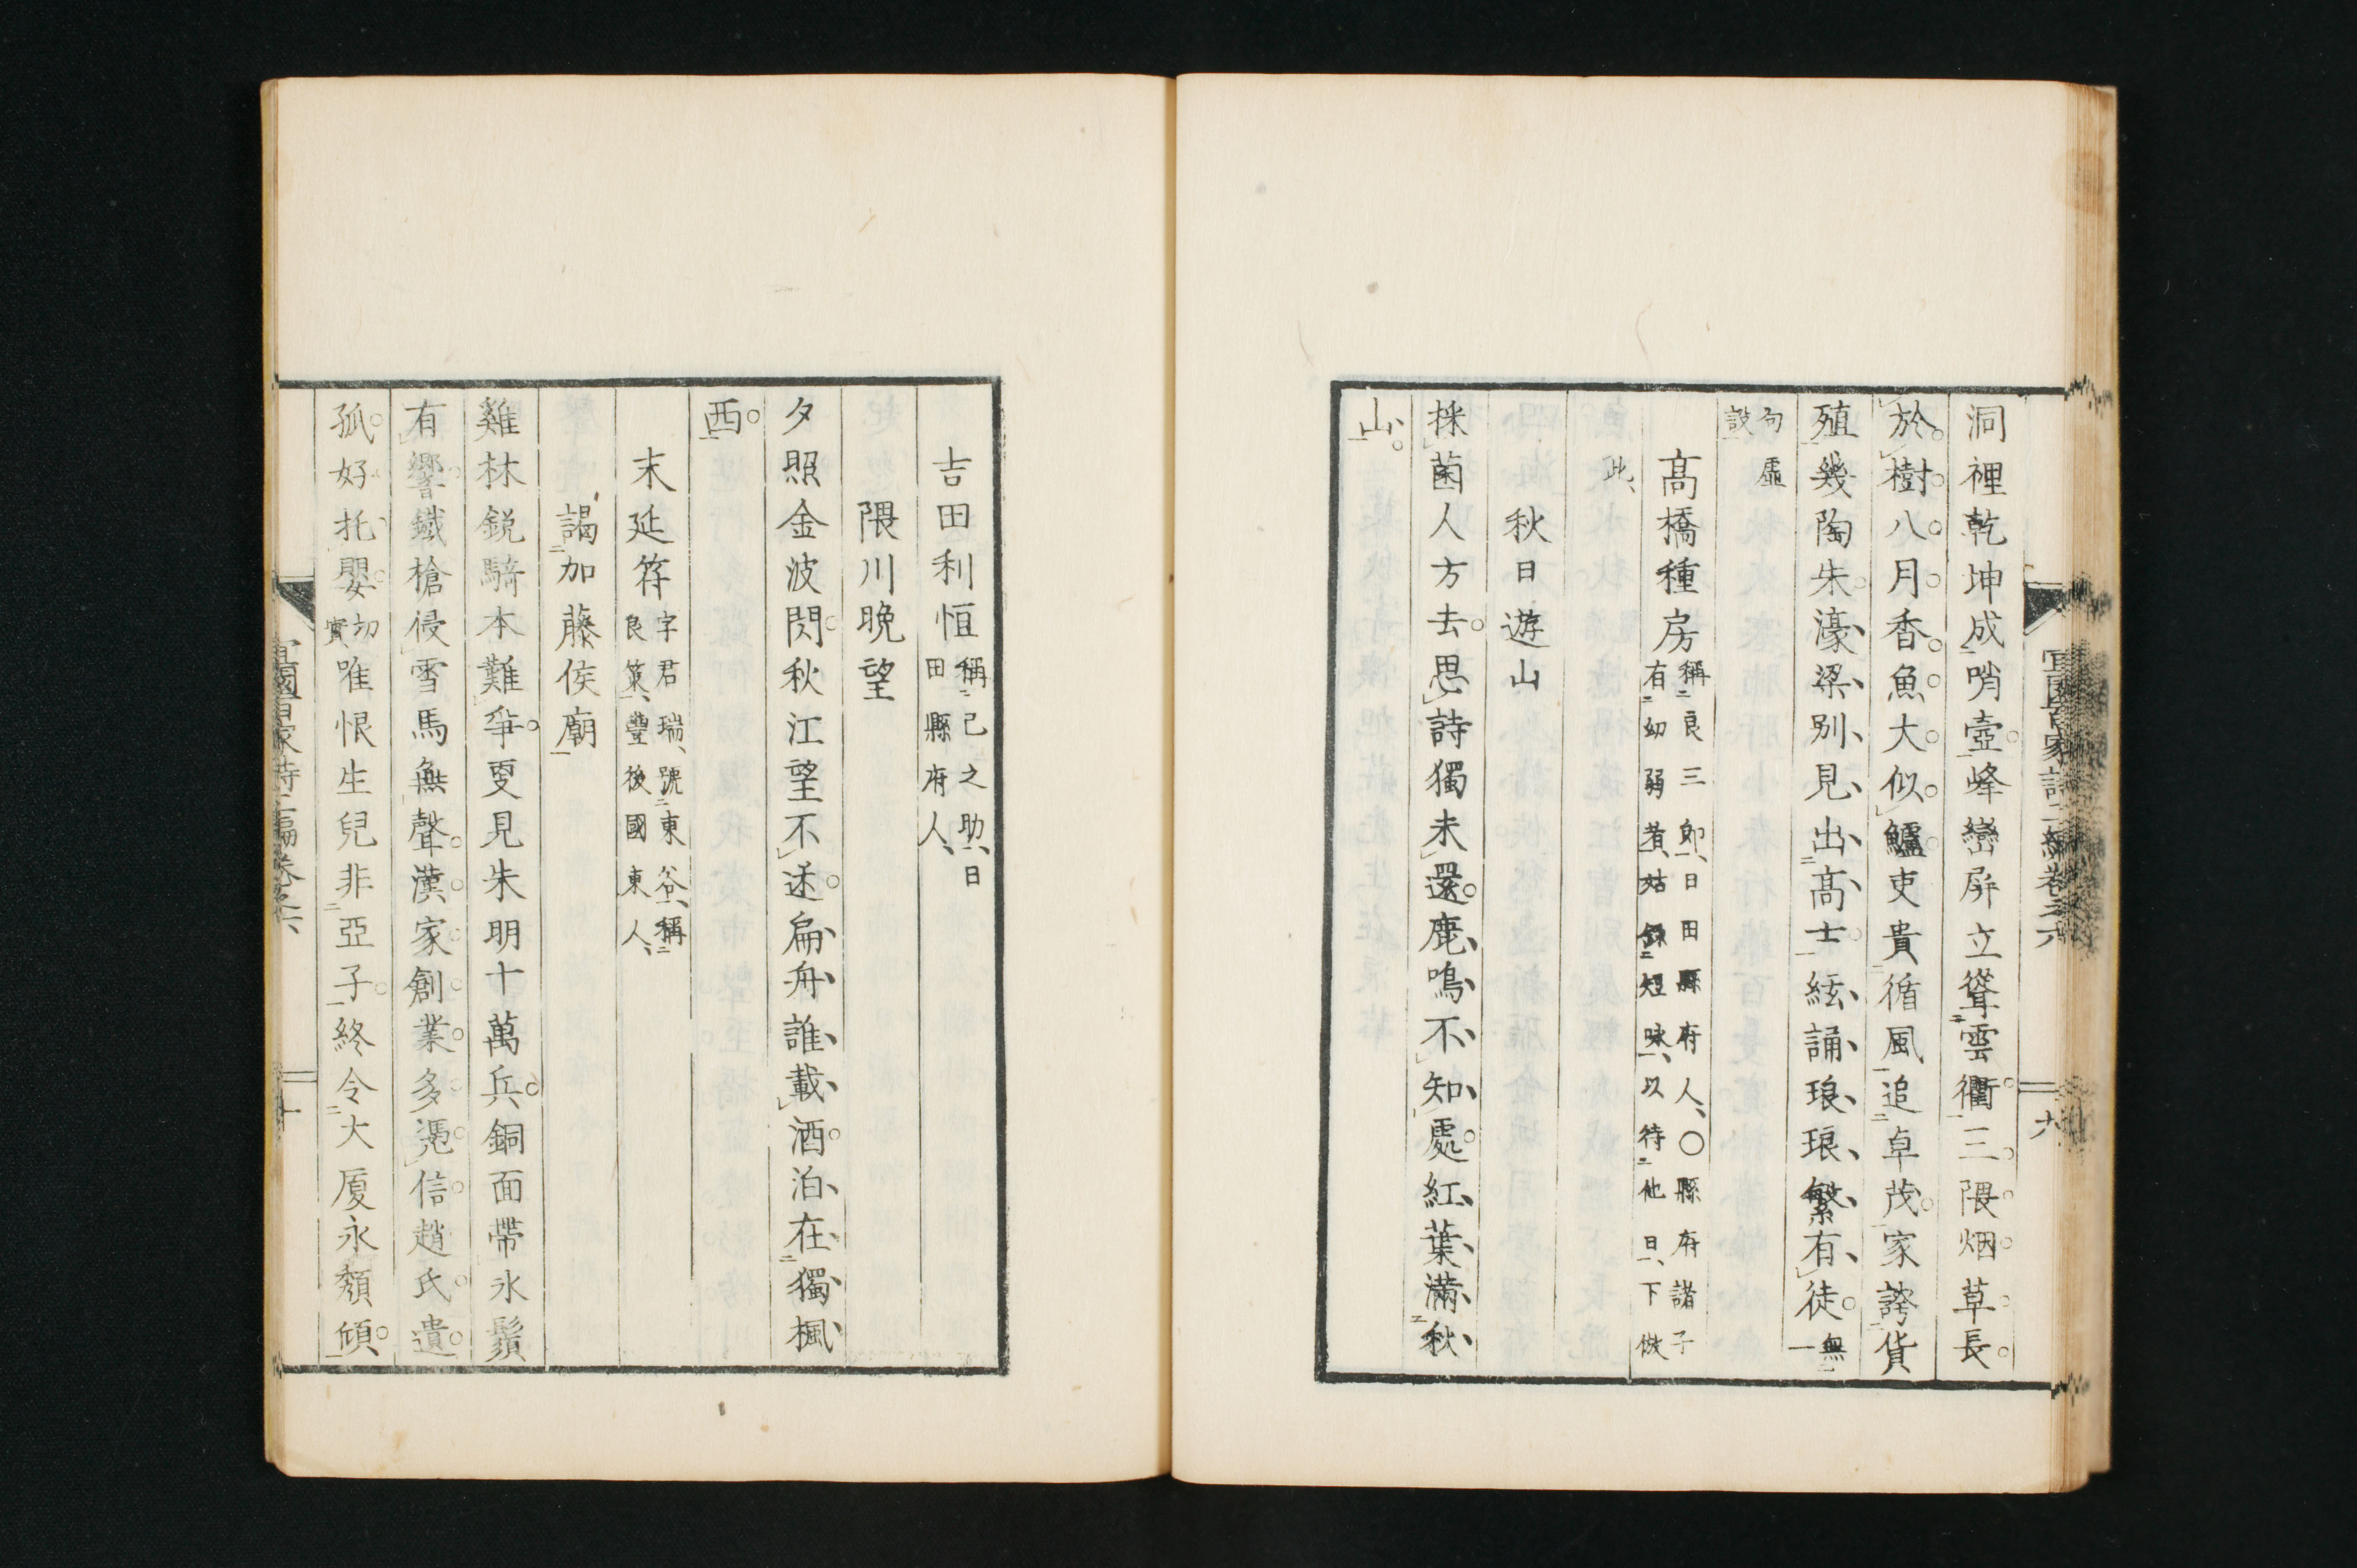 洞裡乾坤成哨壺峰巒屏立聳雲衢三隈烟草長
於樹八月香魚大似鱸吏貴循風追卓茂家誇貨
殖幾陶朱濠梁別見出高士絃誦琅琅繁有徒無一
句虛
設
高橋種房稱良三郎、日田縣府人、〇縣府諸子
有幼弱者、姑錄短咏、以待他日、下倣
此、
秋日遊山
採菌人方去思詩獨未還鹿鳴不知處紅葉滿秋
山
宜園百家詩二編卷之六
六
吉田利恒稱己之助、日
田縣府人、
隈川晚望
夕照金波閃秋江望不迷扁舟誰載酒泊在獨楓
西
末延符字君瑞、號東谷、稱
良策、豐後國東人、
謁加藤侯廟
雞林銳騎本難爭更見朱明十萬兵銅面帶氷鬚
有響鐵槍侵雪馬無聲漢家創業多憑信趙氏遺
孤好托嬰切實唯恨生兒非亞子終令大厦永頽傾
宜園百家詩二編卷之六